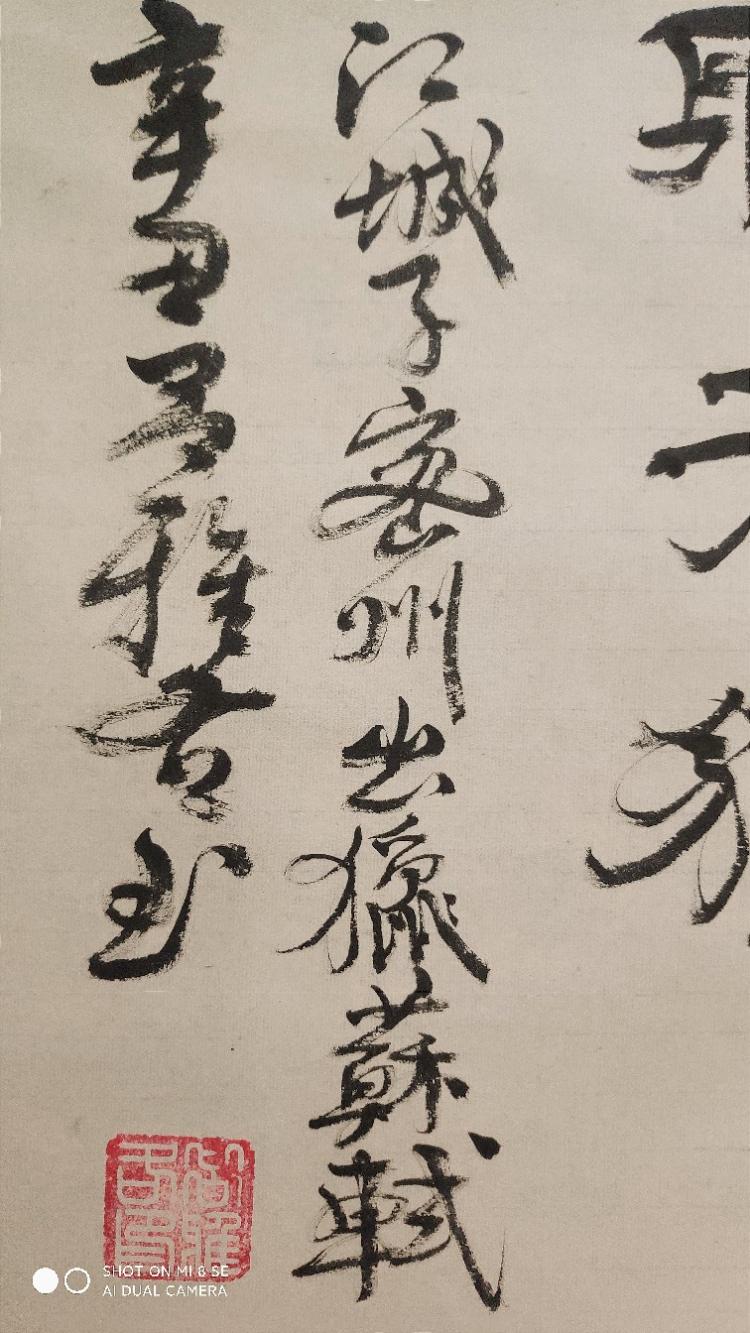 江城子密州出獵蘇軾
辛丑雅书
SHOT ON MI 8 SE
AI DUAL CAMERA